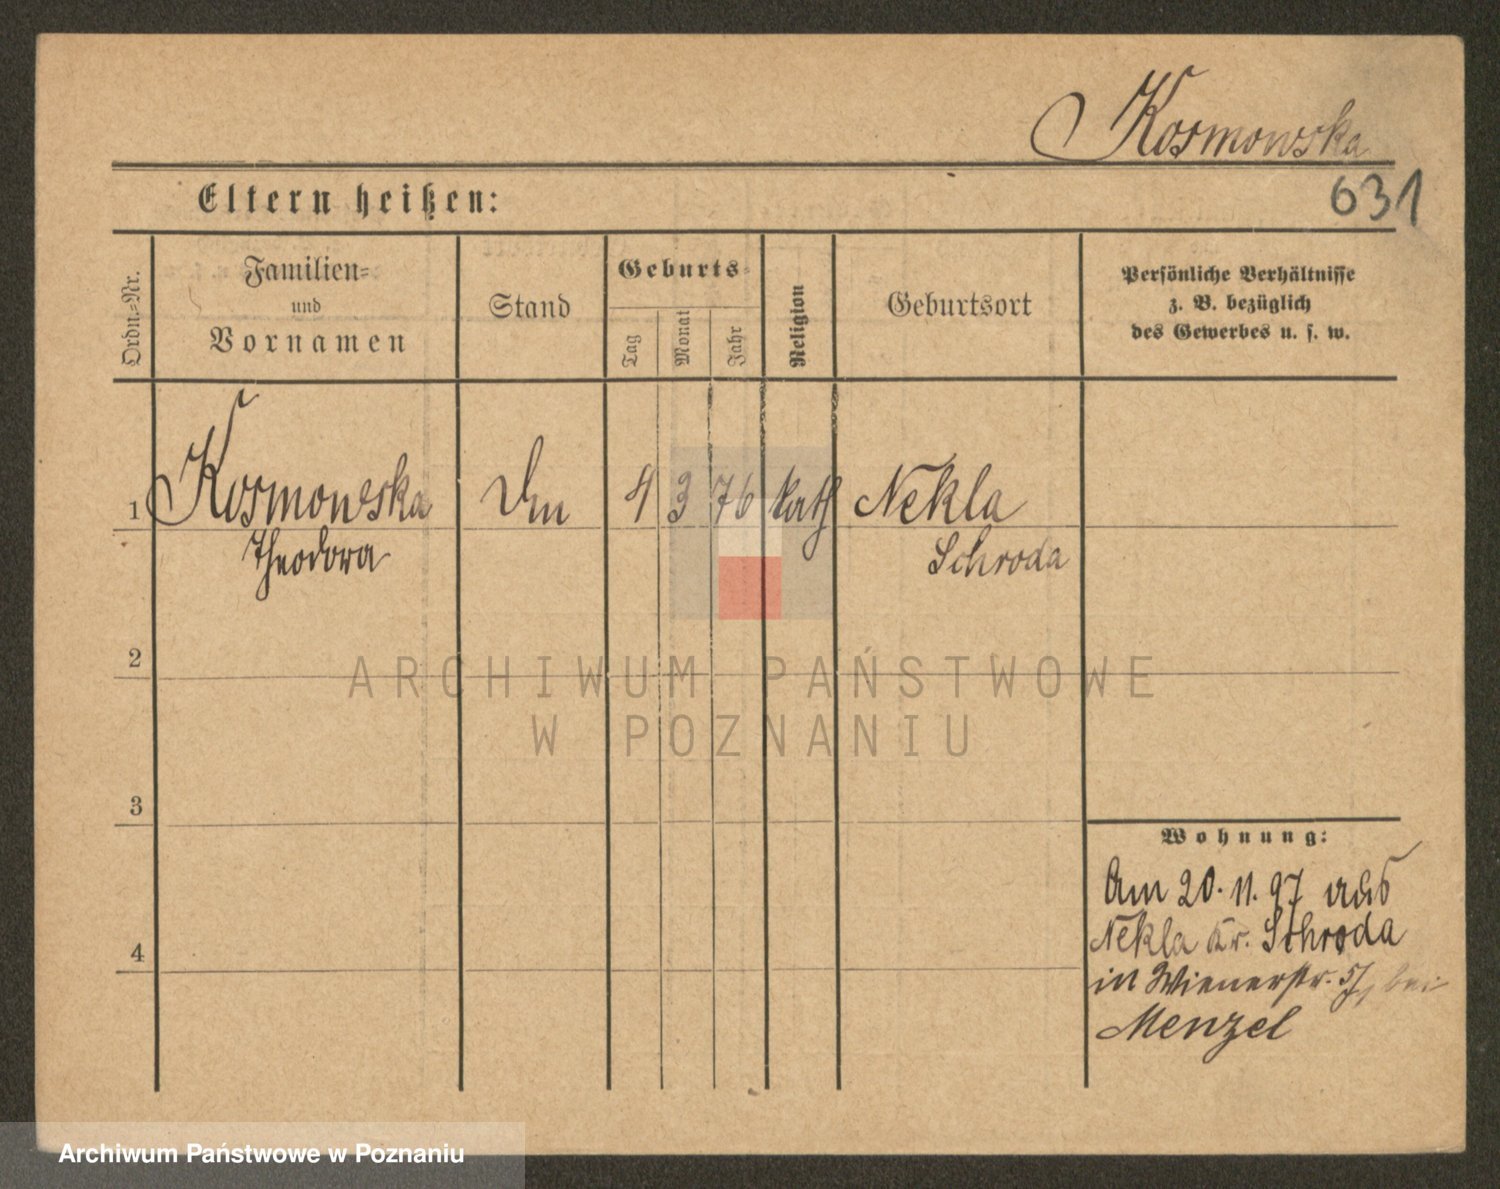 Kosmowska
631
Eltern heißen:
Ordn.-Nr.
Familien-
und
Vornamen
Stand
Geburts-
Tag
Monat
Jahr
Religion
Geburtsort
Persönliche Verhältnisse
z. B. bezüglich
des Gewerbes u. s. w.
1 Kosmowska 4 3 76 kath Nekla
Theodora Schroda
2
ARCHIWUM PAŃSTWOWE
W POZNANIU
3
Wohnung:
Am 20.11.97 aus
Nekla Kr. Schroda
4
in Wienerstr. 5/, bei
Menzel
Archiwum Państwowe w Poznaniu